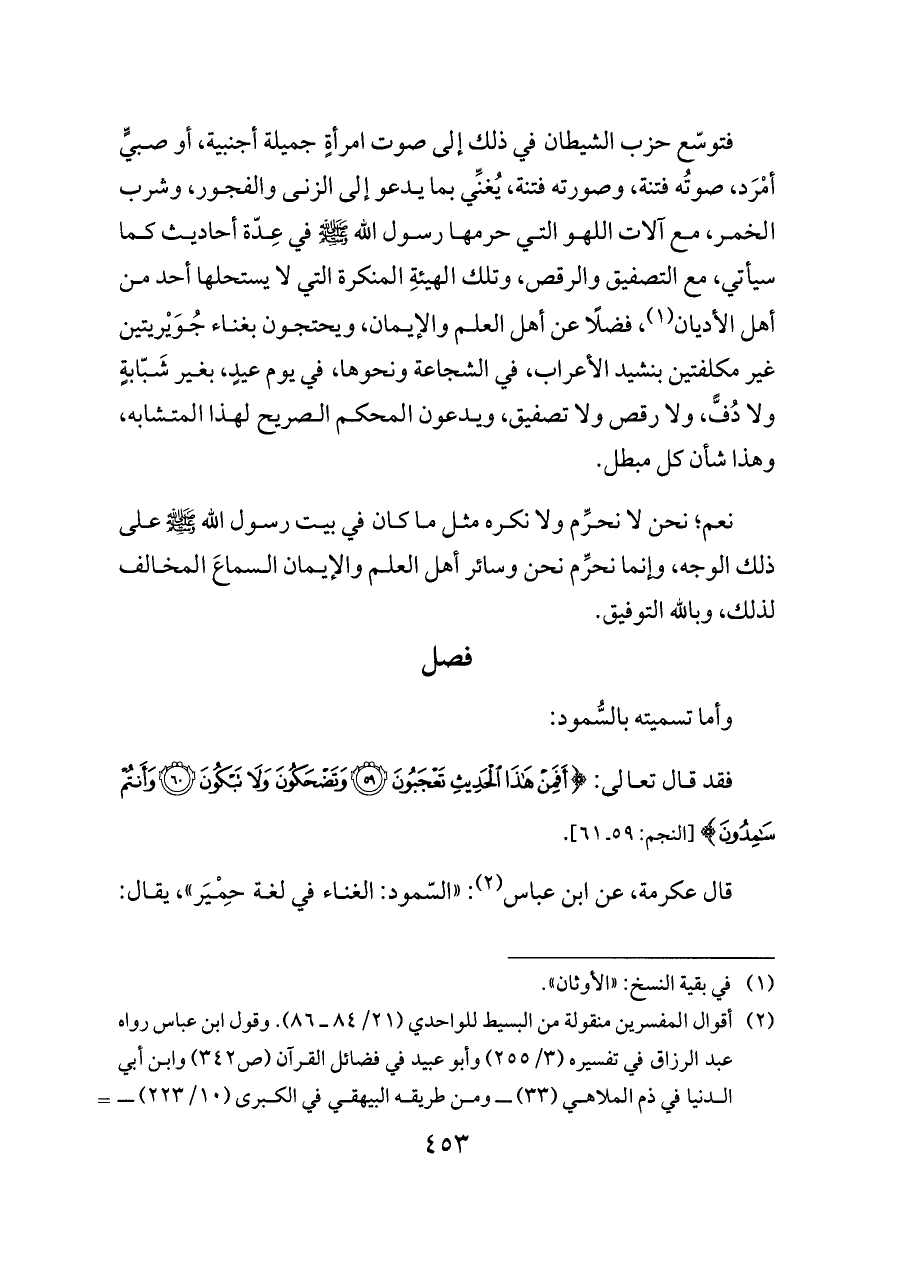 فتوسّع حزب الشيطان في ذلك إلى صوت امرأةٍ جميلة أجنبية، أو صبيٍّ
أمْرَد، صوتُه فتنة، وصورته فتنة، يُغنِّي بما يدعو إلى الزنى والفجور، وشرب
الخمر، مع آلات اللهو التي حرمها رسول الله ﷺ في عِدّة أحاديث كما
سيأتي، مع التصفيق والرقص، وتلك الهيئةِ المنكرة التي لا يستحلها أحد من
أهل الأديان(١)، فضلًا عن أهل العلم والإيمان، ويحتجون بغناء جُوَيْريتين
غير مكلفتين بنشيد الأعراب، في الشجاعة ونحوها، في يوم عيدٍ، بغير شَبّابةٍ
ولا دُفًّ، ولا رقص ولا تصفيق، ويدعون المحكم الصريح لهذا المتشابه،
وهذا شأن كل مبطل.
نعم؛ نحن لا نحرِّم ولا نكره مثل ما كان في بيت رسول الله ﷺ على
ذلك الوجه، وإنما نحرِّم نحن وسائر أهل العلم والإيمان السماعَ المخالف
لذلك، وبالله التوفيق.
فصل
وأما تسميته بالسُّمود:
فقد قال تعالى: ﴿أَفَمِنْ هَٰذَا الْحَدِيثِ تَعْجَبُونَ ٥٩ وَتَضْحَكُونَ وَلَا تَبْكُونَ ٦٠ وَأَنتُمْ
سَٰمِدُونَ﴾ [النجم: ٥٩ـ٦١].
قال عكرمة، عن ابن عباس(٢): «السّمود: الغناء في لغة حِمْيَر»، يقال:
(١) في بقية النسخ: «الأوثان».
(٢) أقوال المفسرين منقولة من البسيط للواحدي (٢١/ ٨٤ ـ ٨٦). وقول ابن عباس رواه
عبد الرزاق في تفسيره (٣/ ٢٥٥) وأبو عبيد في فضائل القرآن (ص٣٤٢) وابن أبي
الدنيا في ذم الملاهي (٣٣) ــ ومن طريقه البيهقي في الكبرى (١٠/ ٢٢٣) ــ =
٤٥٣